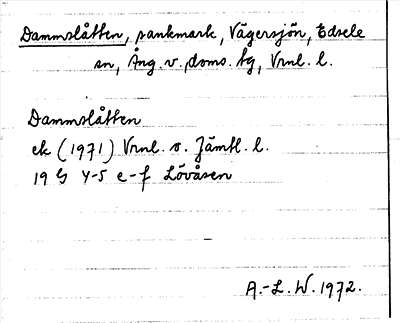 Dammslåtten, sankmark, Vägersjön, Edsele
sn, Ång. v. doms. tg, Vnl. l.
Dammslåtten
ek (1971) Vnl. o. Jämtl. l.
19 G 4-5 e-f Lövåsen
A.-L. W. 1972.